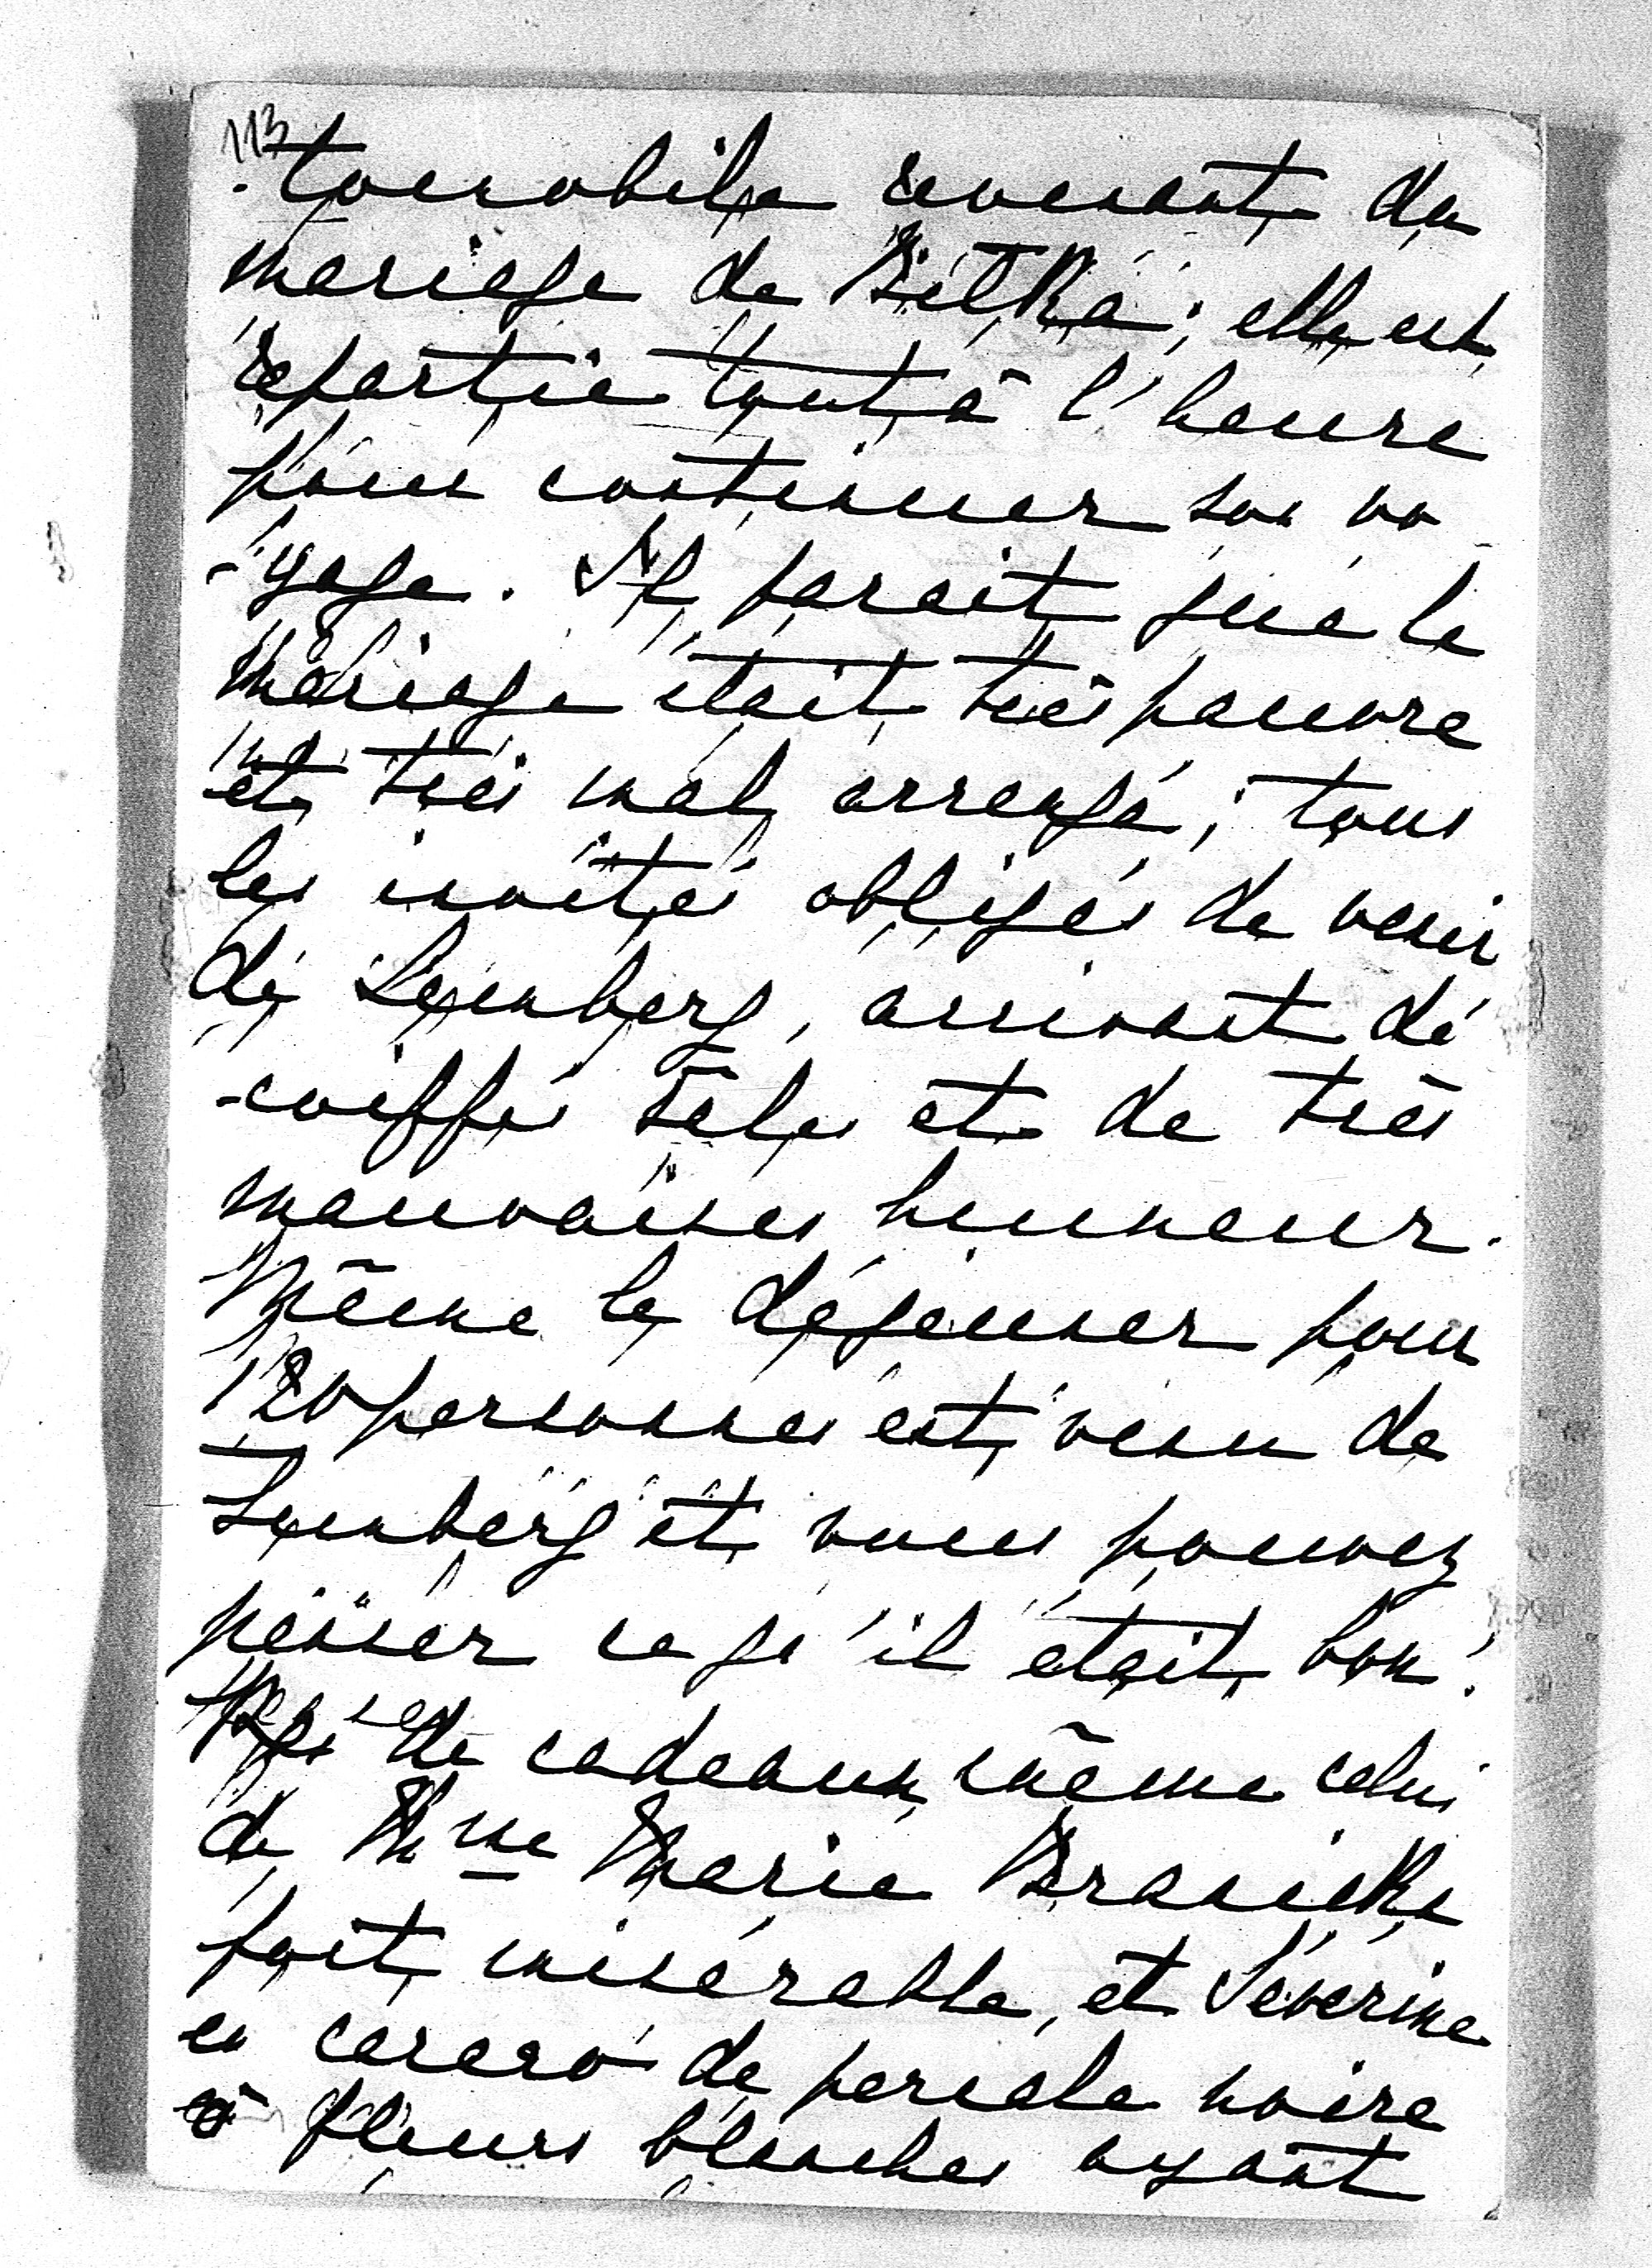 113
-tomobile revenant du
mariage de Bietka; elle est
repartie tout à l'heure
pour continuer son vo
-yage. Il parait que le
mariage était très pauvre
et très mal arrangé; tous
les invités obligés de venir
de Lemberg, arrivant dé
-coiffés sales et de très
mauvaises humeur.
Même le déjeuner pour
120 personnes est venu de
Lemberg et vous pouvez
penser ce qu'il était bon!
de cadeaux, même celui
de Mme Marie Branicka
fort misérable, et Séverine
en caraco de percale noire
à fleurs blanches ayant